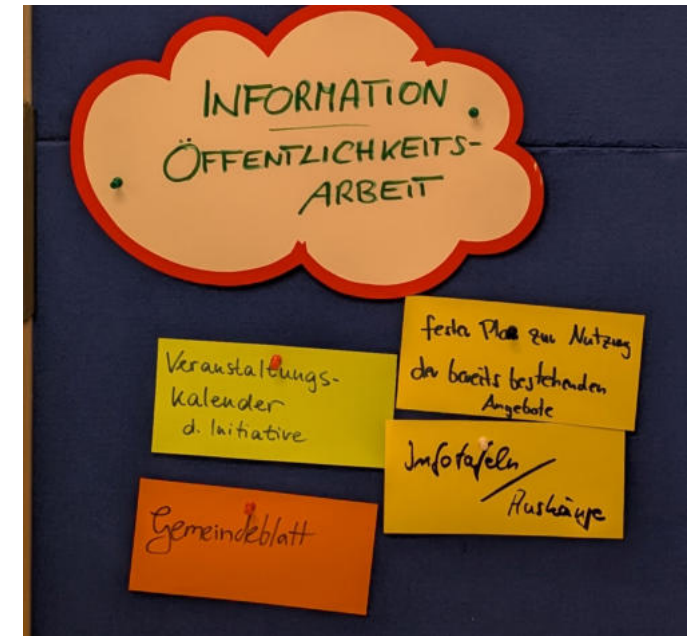 INFORMATION
ÖFFENTLICHKEITS-
ARBEIT
Veranstaltungs-
Kalender
d. Initiative
fester Plan zur Nutzung
der bereits bestehenden
Angebote
Infotafeln/
Aushänge
Gemeindeblatt